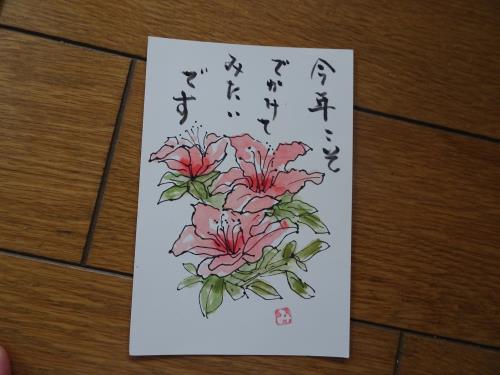 今年こそ
でかけて
みたい
です